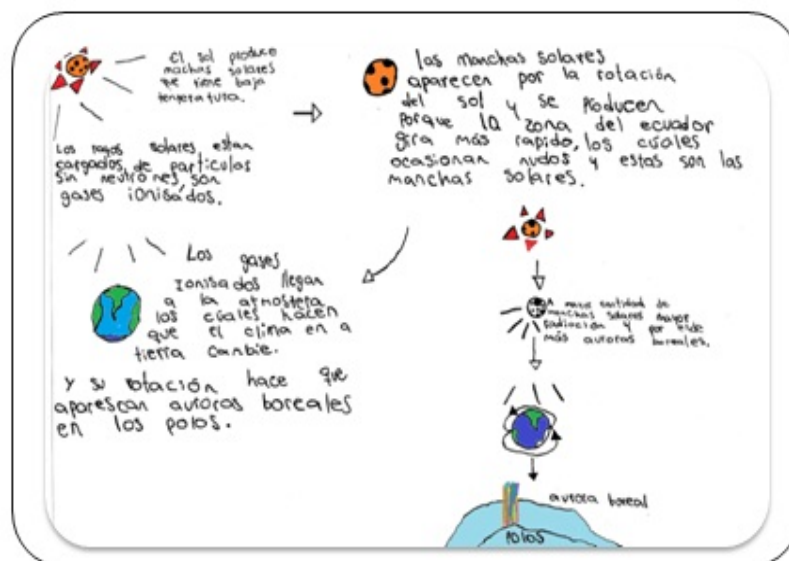 El sol produce
machas solares
que tiene baja
temperatura.
Los rayos solares estan
cargados, de particulas
sin neutrones, son
gases ionisádos.
las manchas solares
aparecen por la rotación
del sol y se producen
porque la zona del ecuador
gira más rapido, los cúales
ocasionan nudos y estas son las
manchas solares.
Los gases
Ionisados llegan
a la atmosfera
los cúales hacen
que el clima en a
tierra cambie.
y su rotación hace que
aparescan auroras boreales
en los polos.
A mayor cantidad de
manchas solares mayor
radiación y por ende
más auroras boreales.
aurora boreal
POLOS